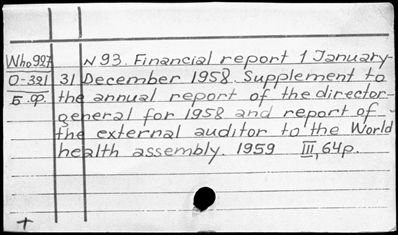 Who927 N 93. Financial report 1 January-
O-321 31 December 1958. Supplement to
Б.Ф. the annual report of the director-
general for 1958 and report of
the external auditor to the World
health assembly. 1959 III, 64p.
+